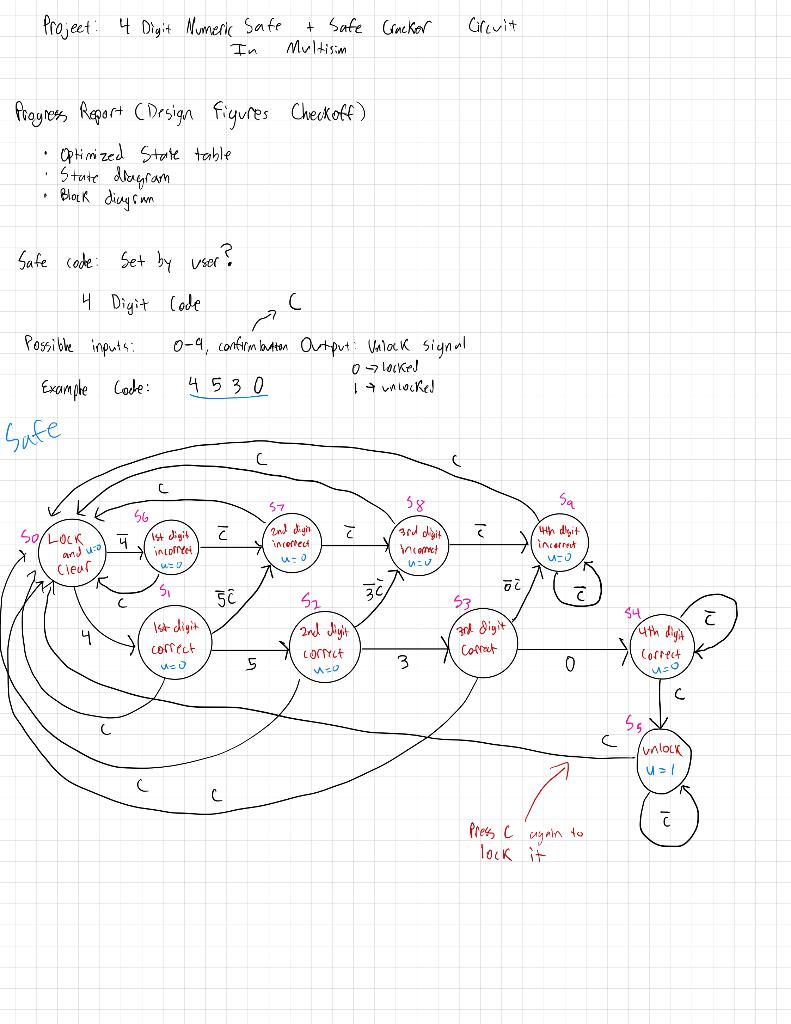 Project: 4 Digit Numeric Safe + Safe Cracker Circuit
In Multisim
Progress Report (Design Figures Checkoff)
• Optimized State table
• State diagram
• Block diagram
Safe code: Set by user?
4 Digit Code
C
Possible inputs: 0-9, confirm button Output: Unlock signal
0 → locked
Example Code: 4 5 3 0
1 → unlocked
Safe
C
C
C
S0
Lock and Clear u=0
4̅
S6
1st digit incorrect u=0
C̅
S7
2nd digit incorrect u=0
C̅
S8
3rd digit incorrect u=0
C̅
S9
4th digit incorrect u=0
C̅
C
4
S1
1st digit correct u=0
5̅C̅
5
S2
2nd digit correct u=0
3̅C̅
3
S3
3rd digit correct
0̅C̅
0
S4
4th digit correct u=0
C̅
C
S5
unlock u=1
C̅
C
C
C
C
Press C again to
lock it